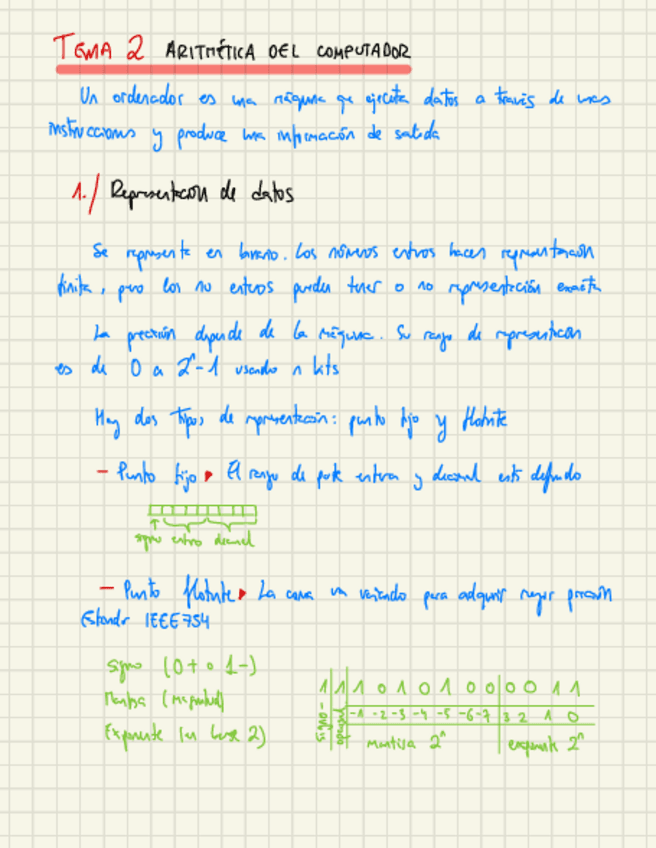 TEMA 2 ARITMÉTICA DEL COMPUTADOR
Un ordenador es una máquina que ejecuta datos a través de unas
instrucciones y produce una información de salida
1./ Representación de datos
Se representa en binario. Los números enteros hacen representación
finita, pero los no enteros pueden tener o no representación exacta
La precisión depende de la máquina. Su rango de representación
es de 0 a 2^n-1 usando n bits
Hay dos tipos de representación: punto fijo y flotante
- Punto fijo ▸ El rango de parte entera y decimal está definido
signo entero decimal
- Punto flotante ▸ La coma va variando para adquirir mayor precisión
Estándar IEEE754
signo (0+ o 1-)
Mantisa (magnitud)
Exponente (en base 2)
1 1 1 0 1 0 1 0 0 0 0 1 1
signo -1 -2 -3 -4 -5 -6 -7 3 2 1 0
mantisa 2^n exponente 2^n